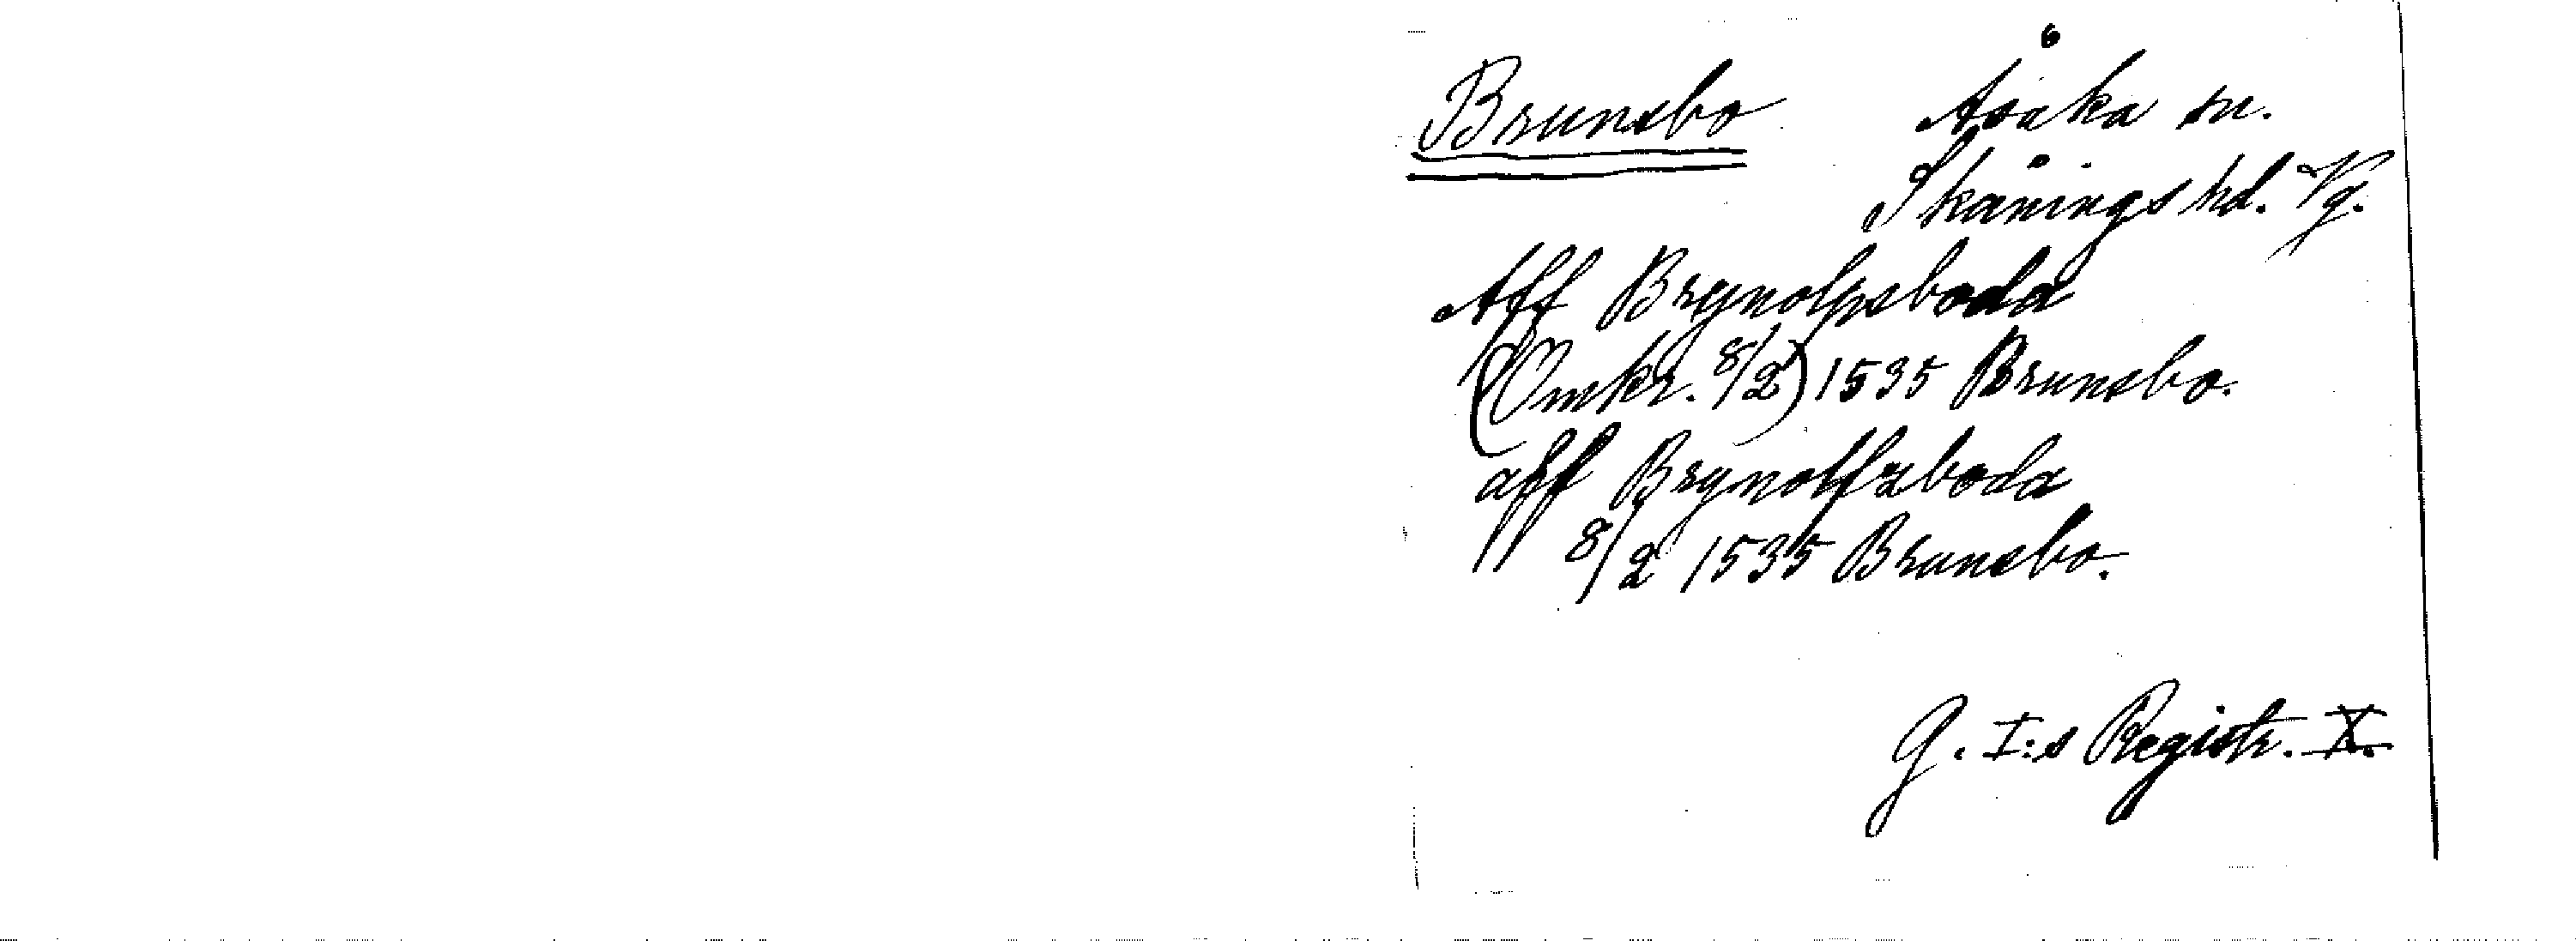 Brunsbo Åsaka sn.
Skånings hd. Vg.
Aff Brynolpsboda
(Omkr. 8/2) 1535 Brunsbo.
aff Brynolfzboda
8/2 1535 Brunsbo.
G. I:s Registr. X.